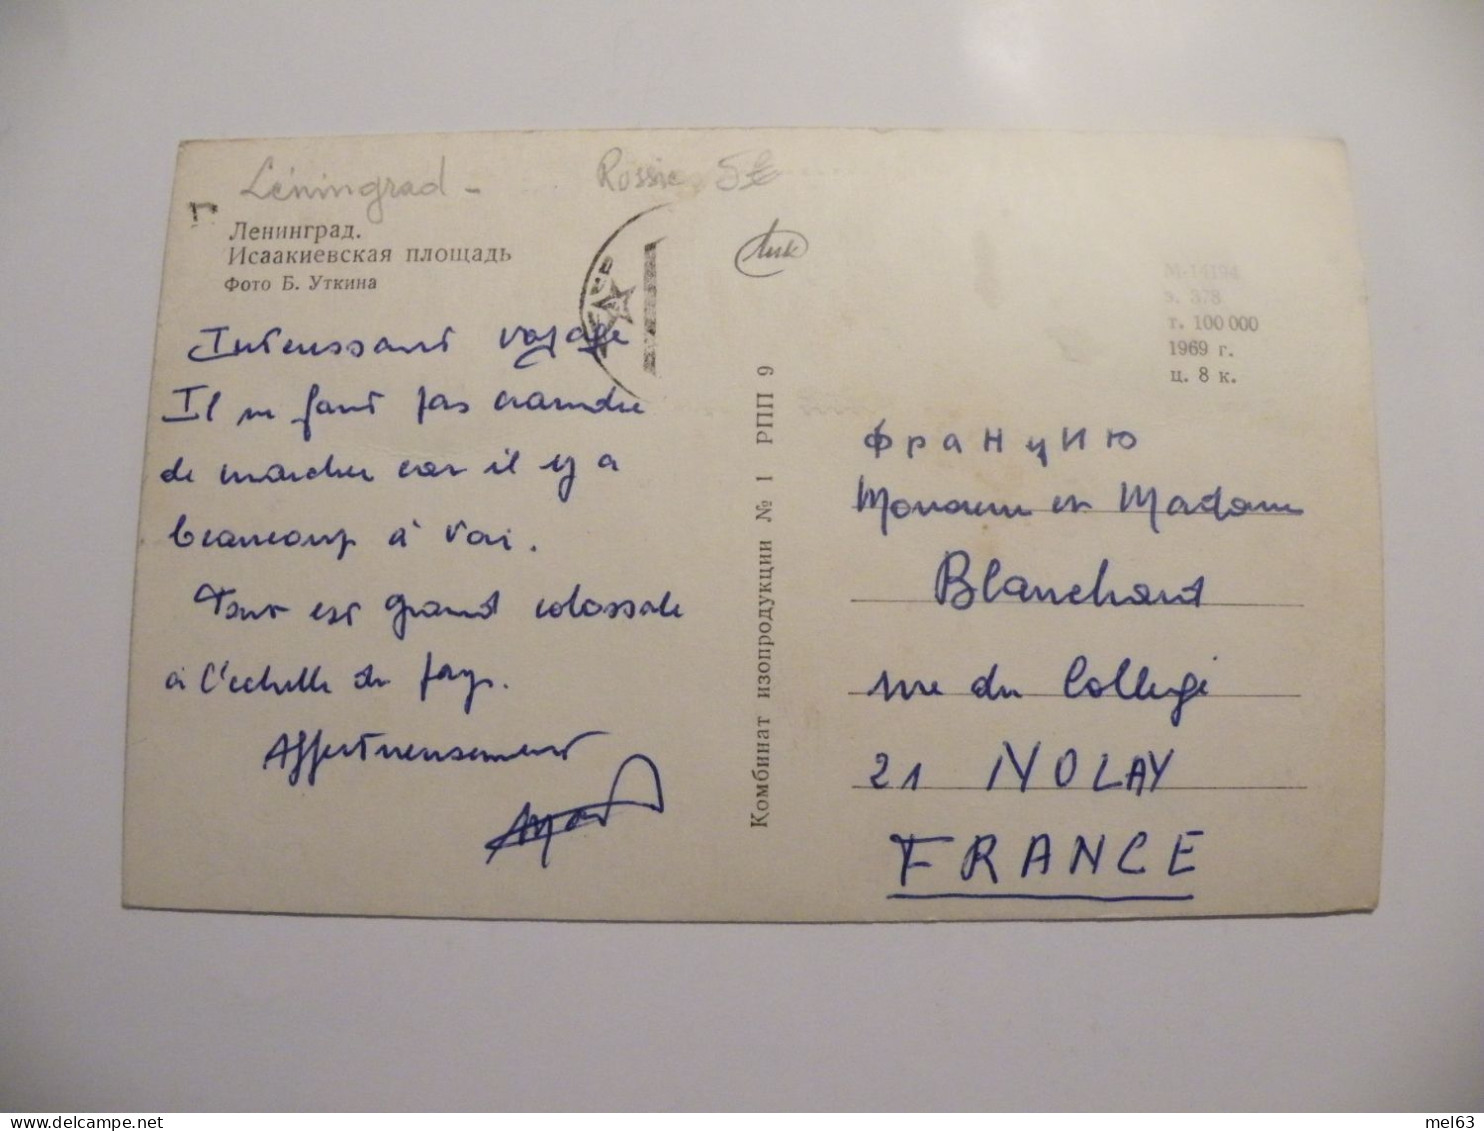 Léningrad -
Russie 5€
Ленинград.
Исаакиевская площадь
Фото Б. Уткина
Лик
М-14194
з. 378
т. 100 000
1969 г.
ц. 8 к.
Interessant voyage
Il ne faut pas craindre
de marcher car il y a
beaucoup à voir.
Tout est grand colossale
à l'échelle du pays.
Affectueusement
Комбинат изопродукции № 1 РПП 9
Францию
Monsieur et Madame
Blanchard
rue du College
21 NOLAY
FRANCE
mel63